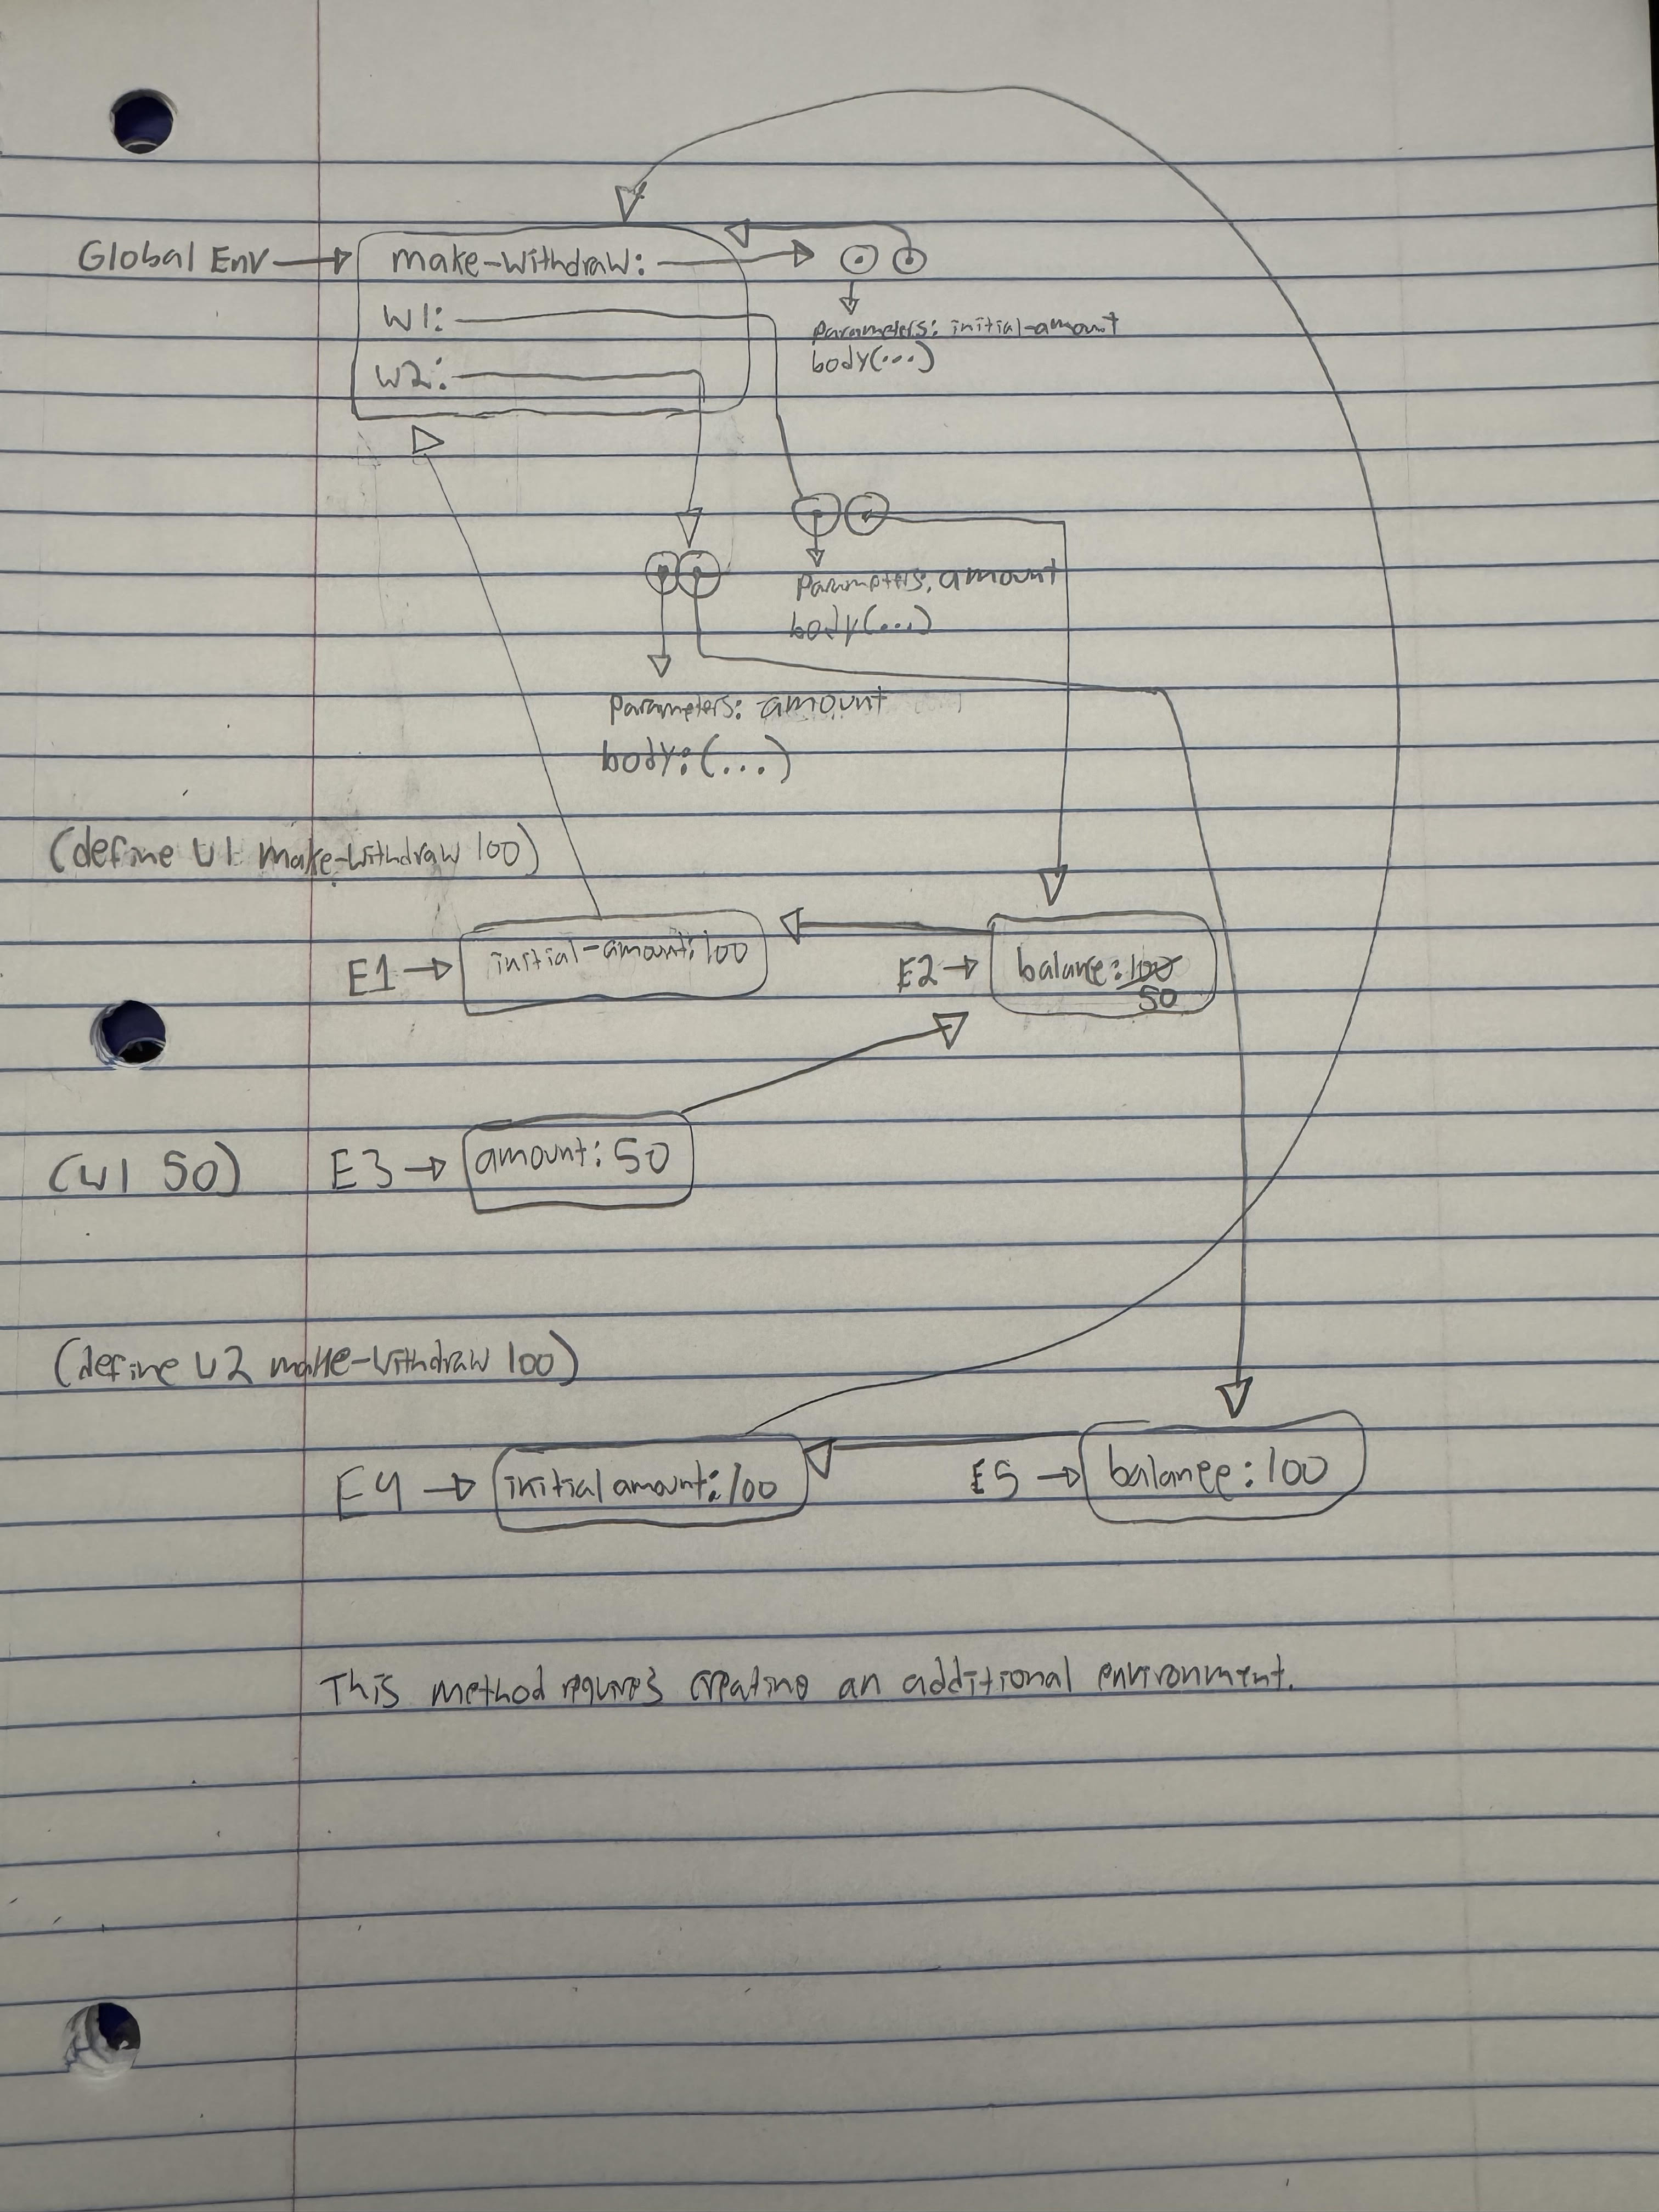 Global Env
make-withdraw:
parameters: initial-amount
body(...)
W1:
W2:
parameters: amount
body(...)
parameters: amount
body:(...)
(define W1 make-withdraw 100)
E1
initial-amount: 100
E2
balance: 100
50
(W1 50)
E3
amount: 50
(define W2 make-withdraw 100)
E4
initial amount: 100
E5
balance: 100
This method requires creating an additional environment.